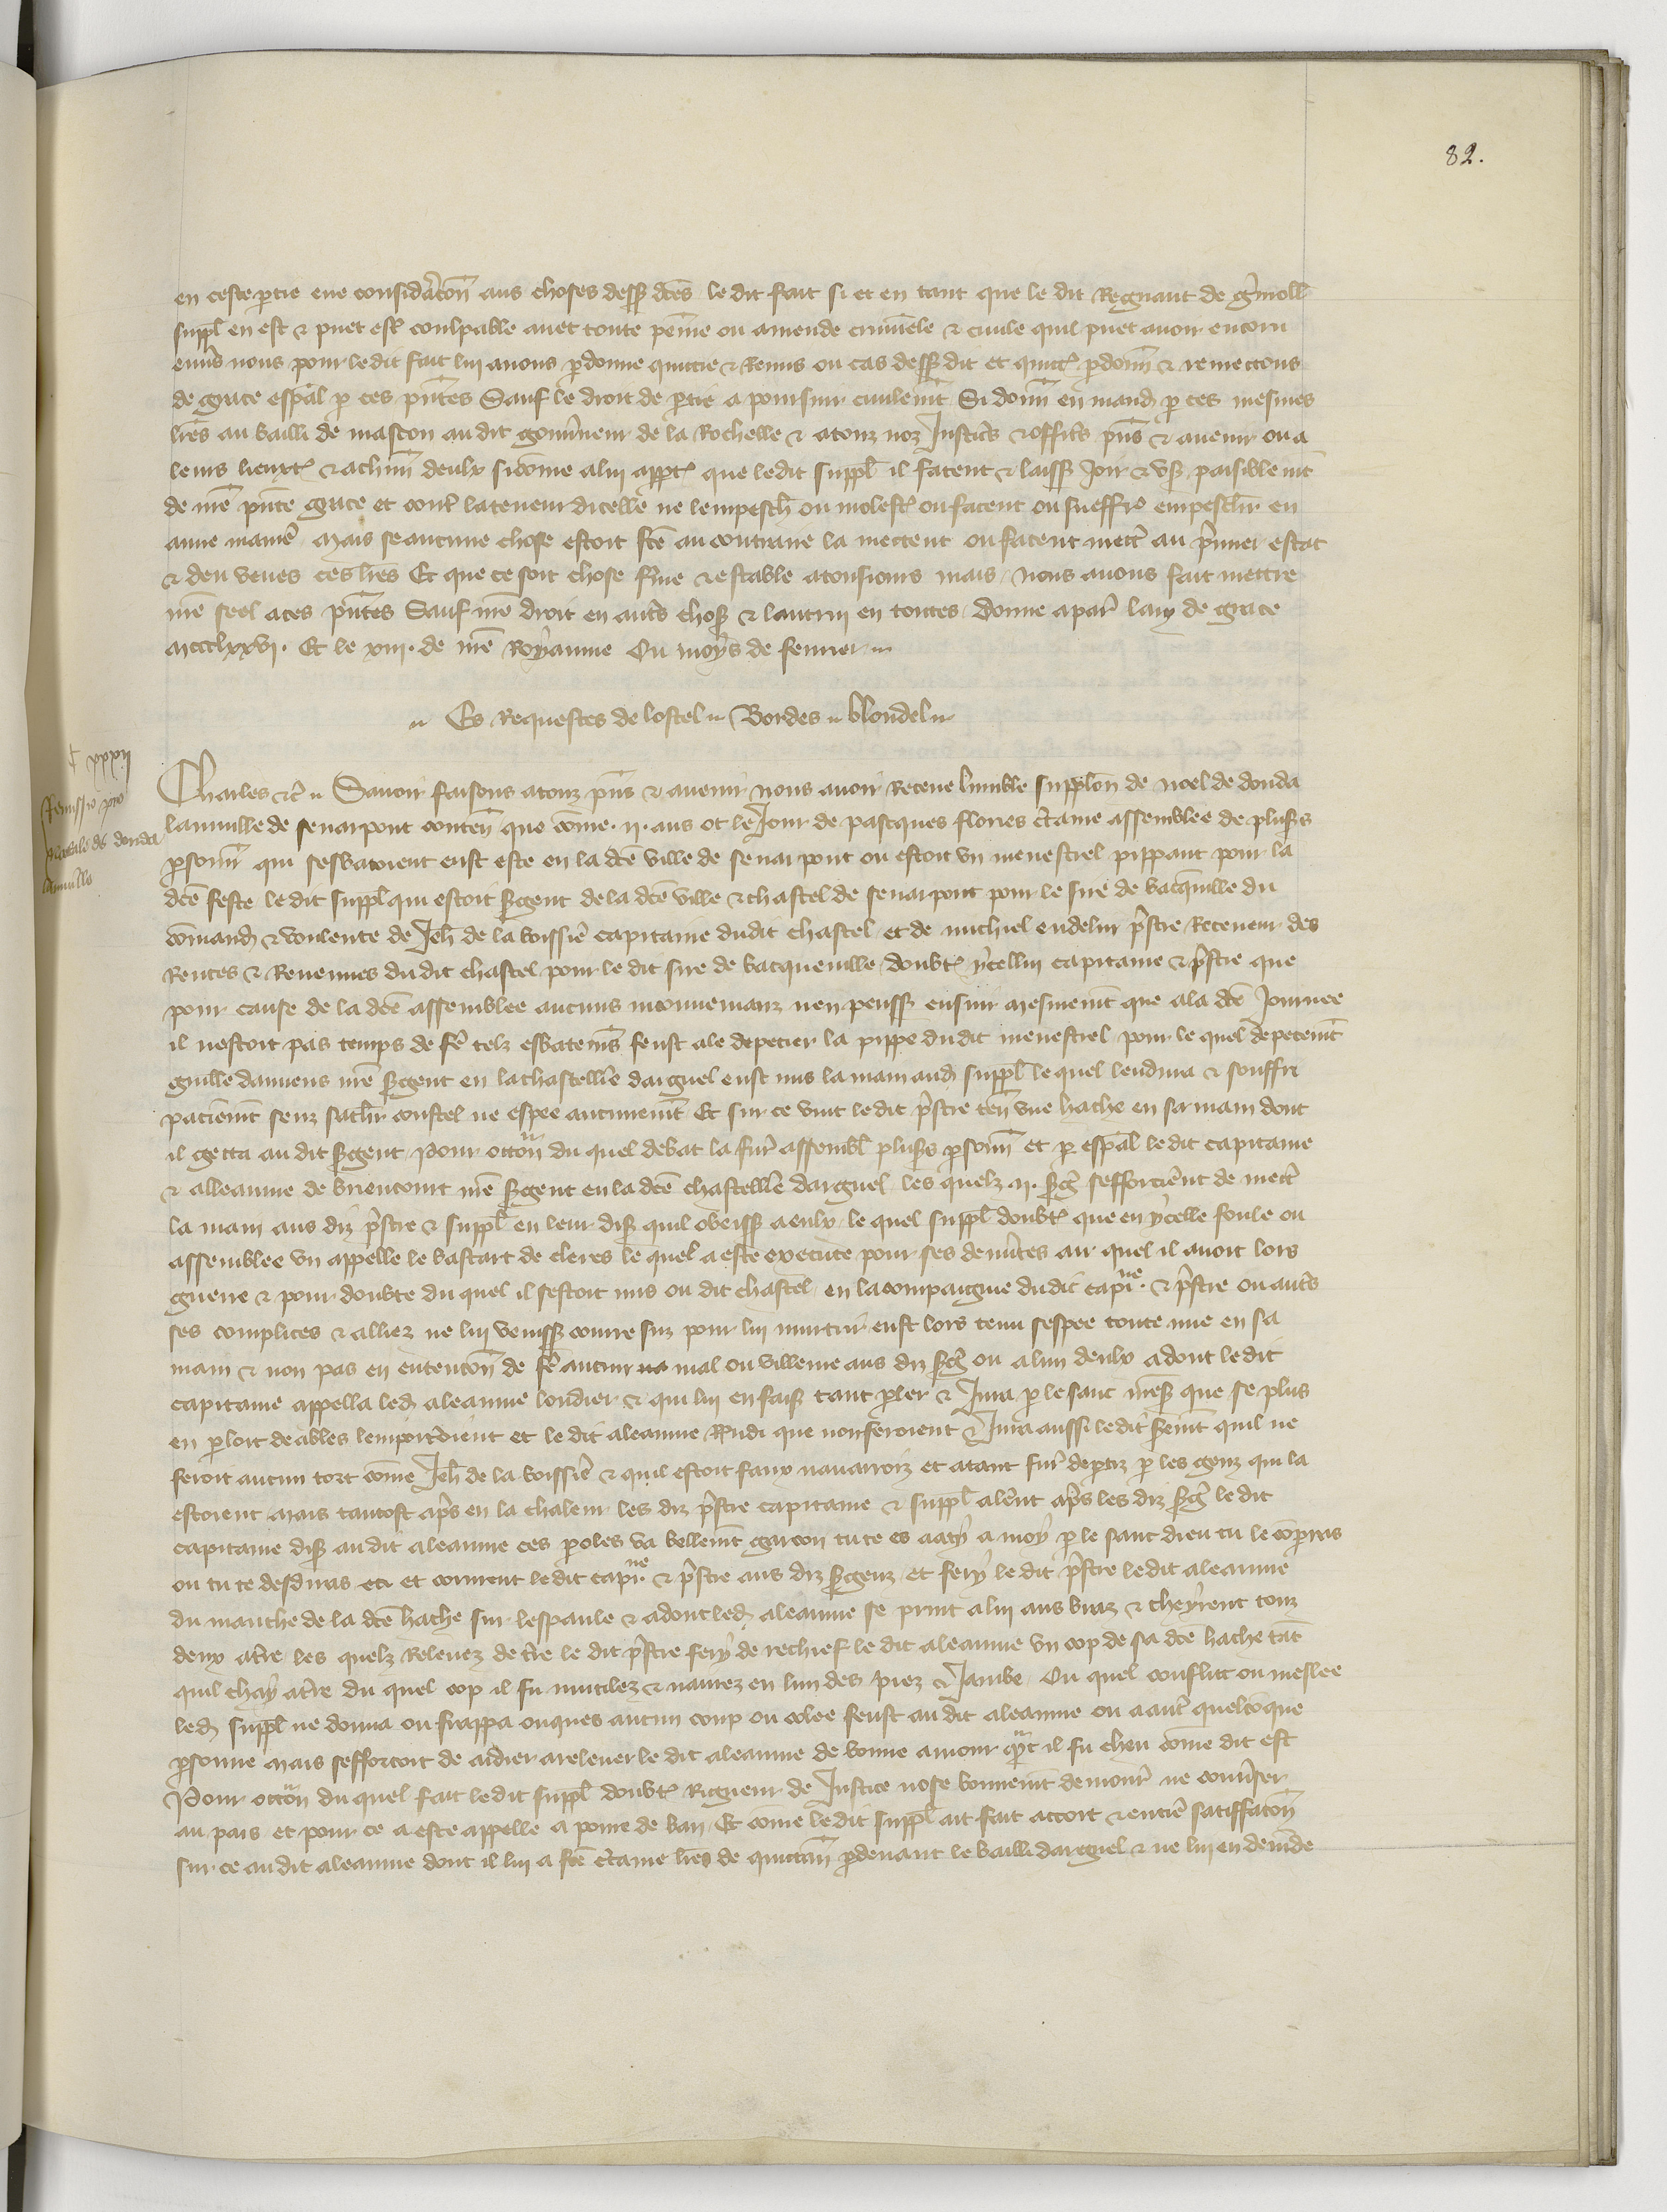 82.
en ceste ptie eue considacon aus choses dess dces le dit fait si et en tant que le dit Regnaut de
suppl en est & puet est coulpable auet toute peine ou amende criminele & ciuile quil puet auoir encoru
enus nous pour le dit fait lui auons pdonne quittie & Remis ou cas dess dit et quitt pdonn & remettons
de grace espal p ces pntes Sauf le droit de ptie a poursuir ciuilemt Si donn en mand p ces mesmes
lres au bailli de mascon au dit gouuneur de la Rochelle & a touz noz Justics & offics pns & auenir ou a
leurs lieuxt & a chun deulx si come a lui appt que le dit suppl il facent & laiss Joir & us paisiblemt
de nre pnte grace et cont la teneur dicelle ne lempesch ou molest ou facent ou sueffre empeschr en
aune manie Mais se aucune chose estoit fce au contraire la mettent ou facent mett au pmier estat
& deu veues ces lres Et que ce soit chose fme & estable a tousiours mais Nous auons fait mettre
nre seel a ces pntes Sauf nre droit en auts chos & lautrui en toutes Donne a paris lan de grace
mccclxxvi. Et le xiii. de nre Royaume Ou moys de feurier
Es Requestes de lostel Bordes blondel
xxxii
Remissio pro
Natale de donda
lanuille
Charles &c Sauoir faisons a touz pns & auenir Nous auoir Receue lumble supplon de noel de donda
lanuille de senarpont conten que come .ii. ans ot le Jour de pasques flories ctaine assemblee de plusrs
psonn qui sesbatoient eust este en la dce ville de senarpont ou estoit un menestrel pippant pour la
dce feste le dit suppl qui estoit sgent de la dce ville & chastel de senarpont pour le sire de bacqueuille du
comand & voulente de Jeh de la boissie capitaine dudit chastel et de michiel endelin pstre Receueur des
Rentes & Reuenues du dit chastel pour le dit sire de bacqueuille doubt ycellui capitaine & pstre que
pour cause de la dce assemblee aucuns inconuenianz nen peuss ensuir mesmemt que a la dce Journee
il nestoit pas temps de fe telz esbatemens feust ale depecier la pippe dudit menestrel pour le quel depecemt
guille damiens nre sgent en la chastellie darguel eust mis la main aud suppl le quel lendura & souffri
paciemt senz sachr coustel ne espee aucunemt Et sur ce vint ledit pstre ten une hache en sa main dont
il getta au dit sgent Pour occon du quel debat la fur assembl plusrs psonn et p espal le dit capitaine
& alleaume de briencourt nre sgent en la dce chastellie darguel les quelz .ii. sg sefforcient de mett
la main aus diz pstre & suppl en leur dis quil obeiss a eulx le quel suppl doubt que en ycelle foule ou
assemblee un appelle le bastart de cleres le quel a este execute pour ses demites au quel il auoit lors
guerre & pour doubte du quel il sestoit mis ou dit chastel en la compaignie dudit capine & pstre ou auts
ses complices & alliez ne lui veniss courre sus pour lui murtrir eust lors tenu sespee toute nue en sa
main & non pas en entencon de fe aucun mal ou villenie aus diz sg ou a lun deulx adont le dit
capitaine appella led aleaume lourdier & qui lui en fais tant pler & Jura p le sanc mess que se plus
en ploit deables lemportoient et le dit aleaume Rndi que non feroient & Jura aussi le dit quil ne
feroit aucun tort come Jeh de la boissie & quil estoit faux nauarroiz et atant fur deptiz p les genz qui la
estoient mais tantost aps en la chaleur les diz pstre capitaine & suppl alent aps les diz sg le dit
capitaine dis au dit aleaume ces poles va bellemt garcon tu te es aaty a moy p le sanc dieu tu le compras
ou tu te desdiras et courent le dit capine & pstre aus diz sgenz et fery le dit pstre le dit aleaume
du manche de la dce hache sur lespaule & adont led aleaume se print a lui aus braz & cheyrent touz
deux a tre les quelz Releuez de tre le dit pstre fery de rechief le dit aleaume un cop de sa dce hache tant
quil chay a tre du quel cop il fu mutilez & naurez en lun des piez & Jambe Ou quel conflict ou meslee
led suppl ne donna ou frappa onques aucun coup ou colee feust au dit aleaume ou a aut quelconque
psonne mais sefforcoit de aidier a releuer le dit aleaume de bonne amour qnt il fu cheu come dit est
Pour occon du quel fait le dit suppl doubt Rigueur de Justice nose bonnemt demour ne conuser
au pais et pour ce a este appelle a pome de ban Et come le dit suppl ait fait accort & entie satiffacon
sur ce au dit aleaume dont il lui a fce ctaine lres de quittan pdeuant le bailli darguel & ne lui en demde